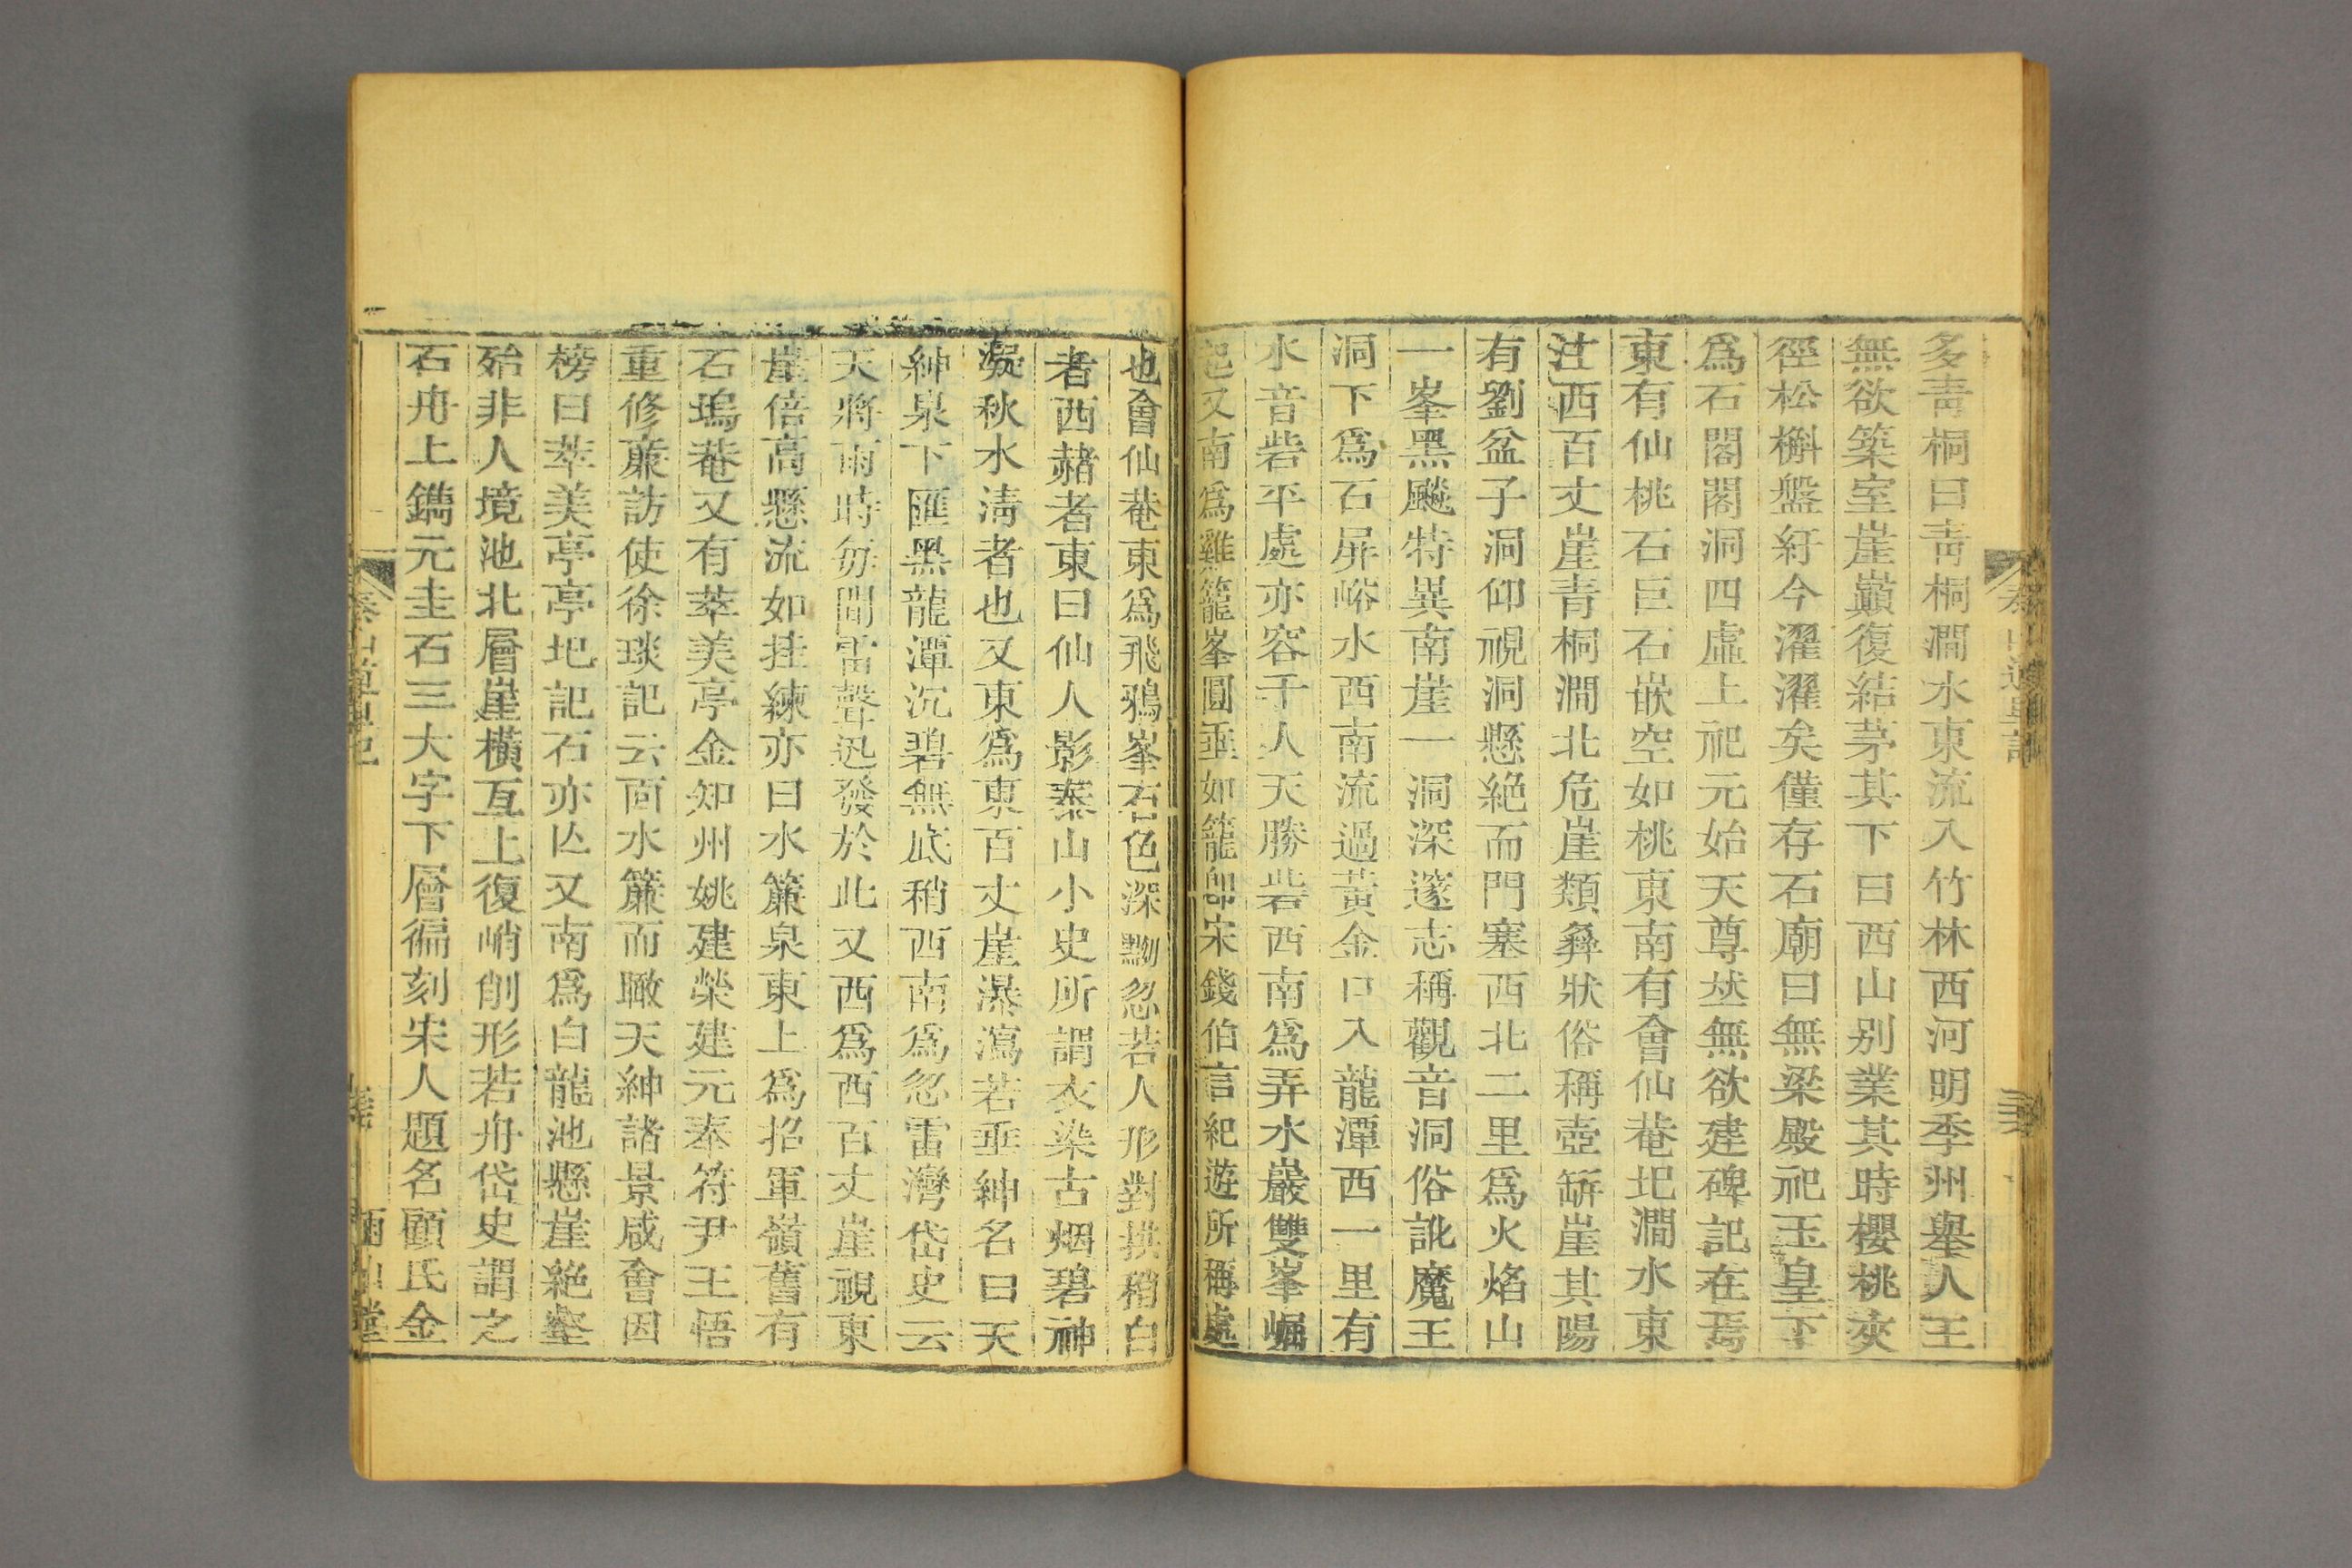 多青桐曰青桐澗水東流入竹林西河明季州舉人王
無欲築室崖巔復結茅其下曰西山别業其時櫻桃夾
徑松槲盤紆今濯濯矣僅存石廟曰無梁殿祀玉皇下
爲石閣閣洞四虛上祀元始天尊坐無欲建碑記在焉
東有仙桃石巨石嵌空如桃東南有會仙菴圯澗水東
注西百丈崖青桐澗北危崖類彝狀俗稱壺缾崖其陽
有劉盆子洞仰視洞懸絶而門塞西北二里爲火焰山
一峯黑颷特異南崖一洞深邃志稱觀音洞俗訛魔王
洞下爲石屏峪水西南流過黃金口入龍潭西一里有
水音砦平處亦容千人天勝砦西南爲弄水巖雙峯崛
起又南爲雞籠峯圓垂如籠卽宋錢伯言紀遊所稱處
也會仙菴東爲飛鴉峯石色深黝忽若人形對拱稍白
者西赭者東曰仙人影泰山小史所謂衣染古烟碧神
凝秋水清者也又東爲東百丈崖瀑瀉若垂紳名曰天
紳泉下匯黑龍潭沉碧無底稍西南爲忽雷灣岱史云
天將雨時每聞雷聲迅發於此又西爲西百丈崖視東
崖倍高懸流如挂練亦曰水簾泉東上爲招軍嶺舊有
石塢菴又有萃美亭金知州姚建榮建元奉符尹王悟
重修㢘訪使徐琰記云面水簾而瞰天紳諸景咸會因
榜曰萃美亭亭圯記石亦亾又南爲白龍池懸崖絶壑
殆非人境池北層崖橫亙上復峭削形若舟岱史謂之
石舟上鐫元圭石三大字下層徧刻宋人題名顧氏金
泰山道里記